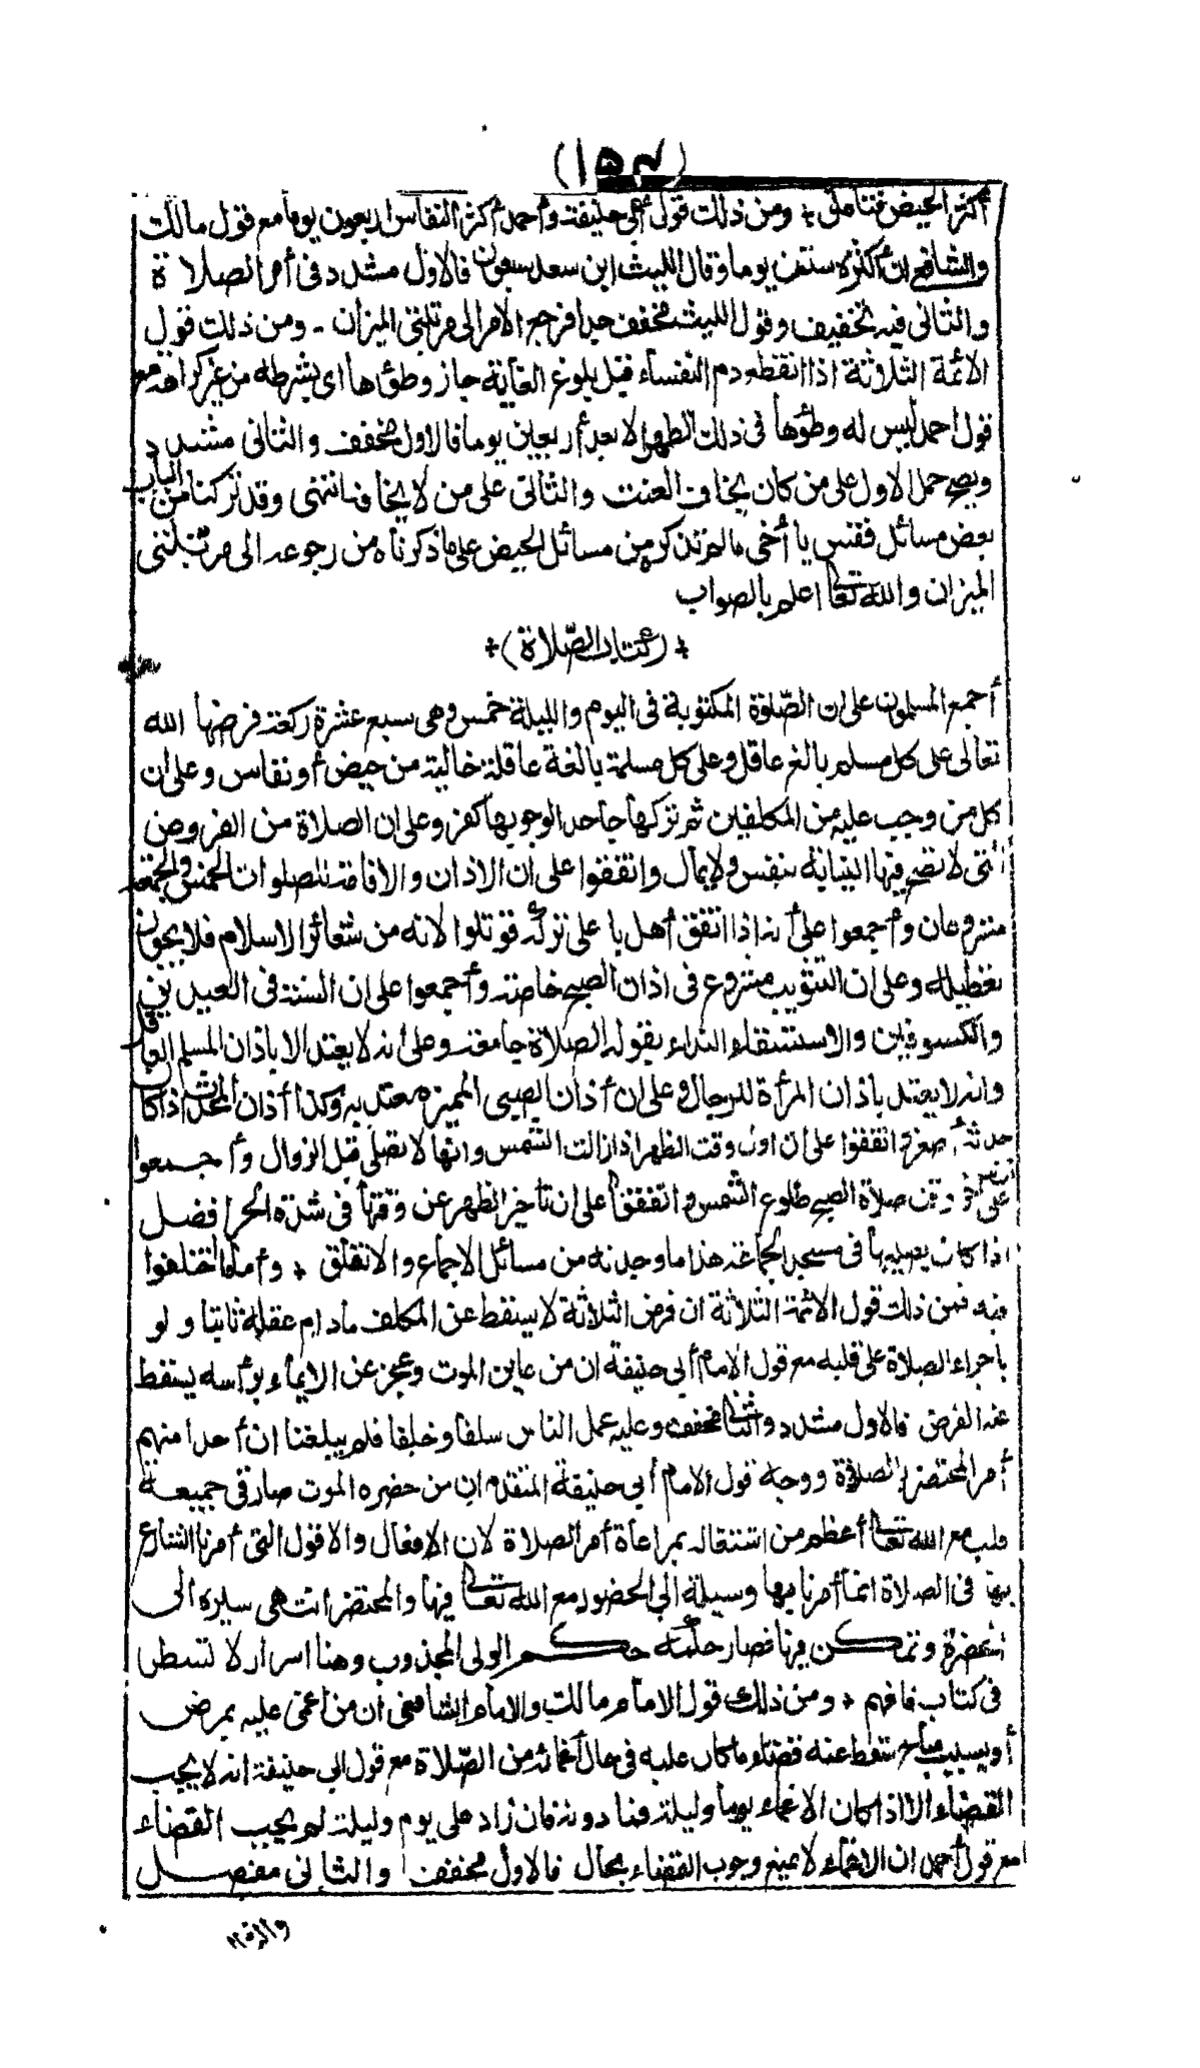 (١٥٣)
أكثر الحيض فتأمل + ومن ذلك قول أبي حنيفة وأحمد أكثر النفاس اربعون يوما مع قول مالك
والشافعي ان أكثره ستون يوما وقال الليث ابن سعد سبعون فالاول مشدد في أمر الصلاة
والثاني فيه تخفيف وقول الليث مخفف جدا فرجع الامر الى مرتبتي الميزان - ومن ذلك قول
الائمة الثلاثة اذا انقطع دم النفساء قبل بلوغ الغاية جاز وطؤها اى بشرطه من غير كراهة مع
قول احمد ليس له وطؤها في ذلك الطهر الا بعد أربعين يوما فالاول مخفف والثاني مشدد
ويصح حمل الاول على من كان يخاف العنت والثاني على من لا يخاف انتهى وقد تركنا من الباب
بعض مسائل فقس يا أخى ما لم نذكره من مسائل الحيض على ما ذكرناه من رجوعه الى مرتبتي
الميزان والله تعالى اعلم بالصواب
+ (كتاب الصّلاة) +
أجمع المسلمون على ان الصّلوة المكتوبة في اليوم والليلة خمس وهى سبع عشرة ركعة فرضها الله
تعالى على كل مسلم بالغ عاقل وعلى كل مسلمة بالغة عاقلة خالية من حيض أو نفاس وعلى ان
كل من وجب عليه من المكلفين ثم تركها جاحدا لوجوبها كفر وعلى ان الصلاة من الفروض
التى لا تصح فيها النيابة بنفس ولا بمال واتفقوا على ان الاذان والاقامة للصلوات الخمس والجمعة
مشروعان وأجمعوا على أنه اذا اتفق أهل بلد على تركه قوتلوا لانه من شعائر الاسلام فلا يجوز
تعطيله وعلى ان التثويب مشروع في اذان الصبح خاصة وأجمعوا على ان السنة في العيدين
والكسوفين والاستسقاء النداء بقوله الصلاة جامعة وعلى أنه لا يعتد الا باذان المسلم العاقل
وانه لا يعتد باذان المرأة للرجال وعلى ان أذان الصبى المميز معتد به وكذا أذان المحدث اذا كان
حدثه أصغر واتفقوا على ان اول وقت الظهر اذا زالت الشمس وانها لا تصلى قبل الزوال وأجمعوا
على ان آخر وقت صلاة الصبح طلوع الشمس واتفقوا على ان تأخير الظهر عن وقتها في شدة الحر افضل
اذا كان يصليها في مسجد الجماعة هذا ما وجدته من مسائل الاجماع والاتفاق + وأما ما اختلفوا
فيه فمن ذلك قول الائمة الثلاثة ان فرض الثلاثة لا يسقط عن المكلف مادام عقله ثابتا ولو
باجراء الصلاة على قلبه مع قول الامام أبي حنيفة ان من عاين الموت وعجز عن الايماء برأسه يسقط
عنه الفرض فالاول مشدد والثاني مخفف وعليه عمل الناس سلفا وخلفا فلم يبلغنا ان أحدا منهم
أمر المحتضر بالصلاة ووجه قول الامام أبي حنيفة المتقدم ان من حضره الموت صار في جمعية
قلب مع الله تعالى أعظم من اشتغاله بمراعاة أمر الصلاة لان الافعال والاقوال التى أمرنا الشارع
بها في الصلاة انما أمرنا بها وسيلة الى الحضور مع الله تعالى فيها والمحتضر انتهى سيره الى
الحضرة وتمكن فيها فصار حكمه حكم الولى المجذوب وهنا اسرار لا تسطر
في كتاب فافهم + ومن ذلك قول الامام مالك والامام الشافعي ان من اغمى عليه بمرض
أو بسبب مباح سقط عنه قضاء ما كان عليه في حال اغمائه من الصّلاة مع قول ابي حنيفة انه لا يجب
القضاء الا اذا كان الاغماء يوما وليلة فما دونه فان زاد على يوم وليلة لم يجب القضاء
مع قول أحمد ان الاغماء لا يمنع وجوب القضاء بحال فالاول مخفف والثاني مفصل